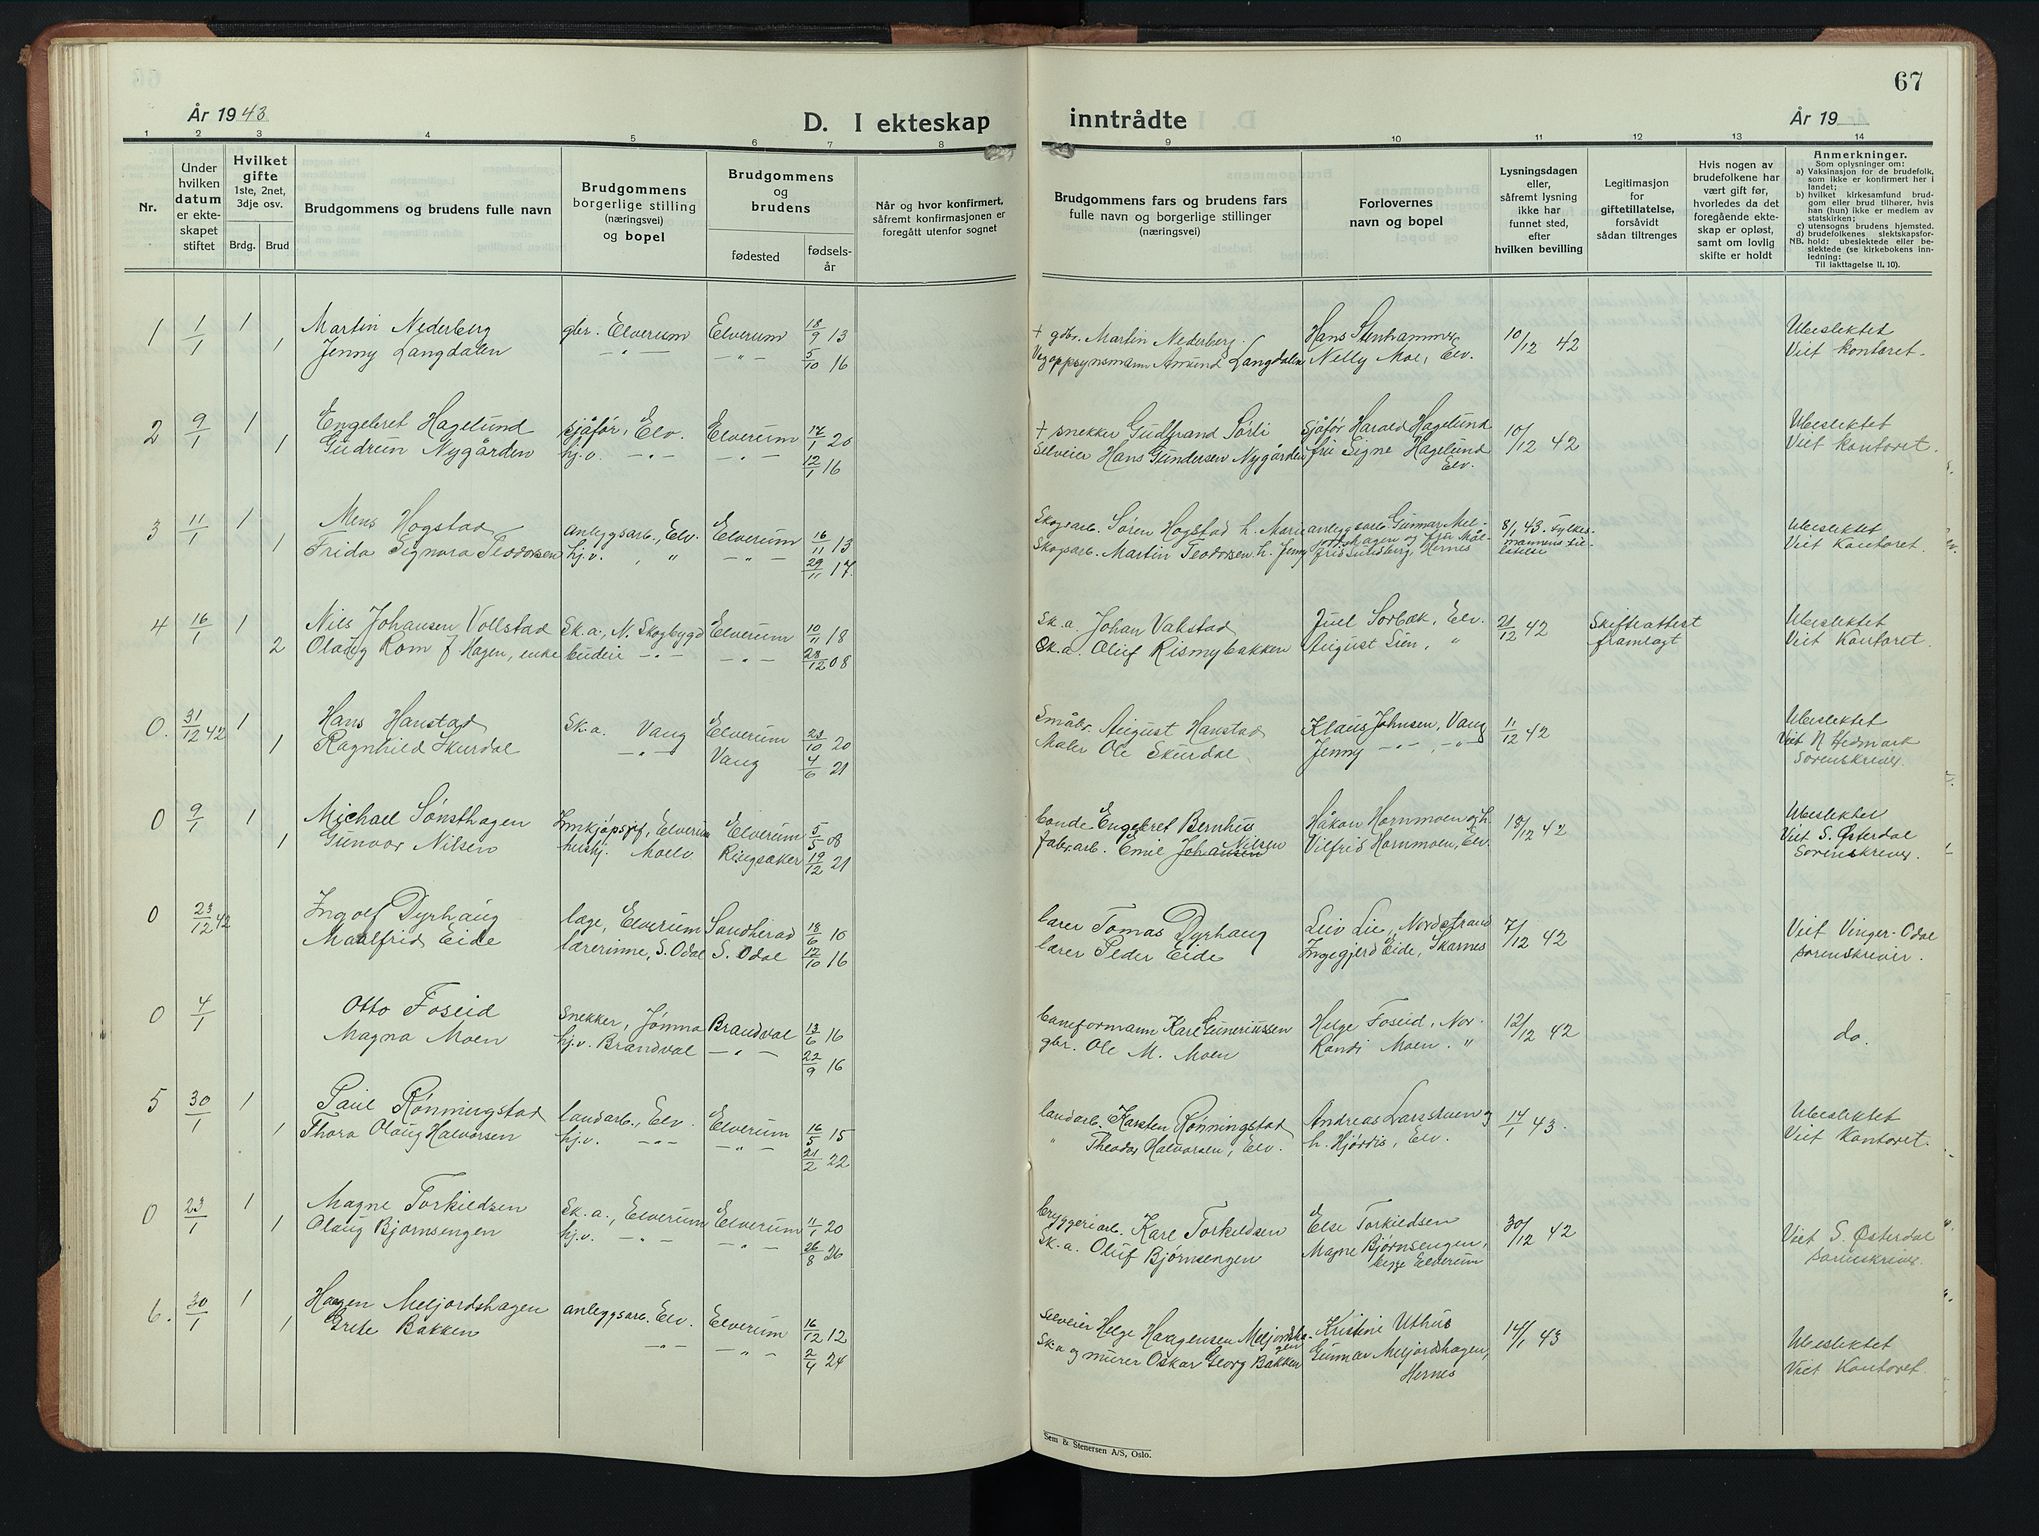 67
År 1943
D. I ekteskap
inntrådte
År 19
1 2 3 4 5 6 7 8 9 10 11 12 13 14
Nr.
Under hvilken datum er ekteskapet stiftet
Hvilket gifte
1ste, 2net, 3dje osv.
Brdg. Brud
Brudgommens og brudens fulle navn
Brudgommens borgerlige stilling (næringsvei) og bopel
Brudgommens og brudens
fødested
fødsels-år
Når og hvor konfirmert, såfremt konfirmasjonen er foregått utenfor sognet
Brudgommens fars og brudens fars fulle navn og borgerlige stillinger (næringsvei)
Forlovernes navn og bopel
Lysningsdagen eller, såfremt lysning ikke har funnet sted, efter hvilken bevilling
Legitimasjon for giftetillatelse, forsåvidt sådan tiltrenges
Hvis nogen av brudefolkene har vært gift før, hvorledes da det foregående ekteskap er opløst, samt om lovlig skifte er holdt
Anmerkninger.
Som oplysninger om:
a) Vaksinasjon for de brudefolk, som ikke er konfirmert her i landet;
b) hvilket kirkesamfund brudgom eller brud tilhører, hvis han (hun) ikke er medlem av statskirken;
c) utensogns brudens hjemsted.
d) brudefolkenes slektskapsforhold: ubeslektede eller beslektede (se kirkebokens innledning:
NB.
Til iakttagelse II. 10).
1 1/1 1 Martin Nederberg gbr. Elverum Elverum 18/9 13 + gdbr. Martin Nederberg. Hans Stenhammer 10/12 42 Ubeslektet
1 Jenny Langdalen -"- -"- 5/10 16 Vegoppsynsmann Amund Langdalen Nelly Moe, Elv. Viet kontoret.
2 9/1 1 Engebret Hagelund sjåfør, Elv. Elverum 17/1 20 + snekker Gudbrand Sørli sjåfør Harald Hagelund 10/12 42 Ubeslektet
1 Gudrun Nygården hj.v. -"- -"- 12/1 16 Selveier Hans Gundersen Nygården fru Signe Hagelund Elv. Viet kontoret.
3 11/1 1 Mens Hogstad anleggsarb., Elv. Elverum 16/11 13 Skogsarb. Søren Hogstad h. Marie anleggsarb. Gunnar Mel- 8/1 43. Fylkes- Ubeslektet
1 Frida Signora Teodorsen hj.v. " -"- 29/11 17. Skogsarb. Martin Teodorsen h. Jenny jordshagen og fru Mål- mannens til-
frid Sundberg, Hernes latelse Viet Kontoret.
4 16/1 1 Nils Johansen Vollstad Sk.a., N. Skogbygd Elverum 10/11 18 Sk.a. Johan Valstad Juel Sorbak, Elv. 21/12 42 Skifteattest Ubeslektet
2 Olaug Rom f Hagen, enke budeie -"- -"- 28/12 08 Sk.a. Oluf Rismybakken August Lien, " framlagt Viet Kontoret.
0. 31/12 42 1 Hans Hanstad Sk.a. Vang Elverum 23/10 20 Småbr. August Hanstad Klaus Johnsen, Vang 11/12 42 Ubeslektet
1 Ragnhild Skurdal -"- Vang 4/6 21 Maler Ole Skurdal. Jenny -"- -"- Viet N Hedmark
Sorenskriver.
0 9/1 1 Michael Sønsthagen Innkjøpssjef, Elverum Elverum 5/5 08 bonde Engebret Bernhus Håkon Hornmoen og h. 18/12 42 Ubeslektet
1 Gunvor Nilsen hushj. Moelv Ringsaker 19/12 21 Fabr.arb. Emil Johansen Nilsen Vilfrid Hornmoen, Elv. Viet S. Østerdal
Sorenskriver.
0 23/12 42 Ingolf Dyrhaug læge, Elverum Sandherad 18/6 10 lærer Tomas Dyrhaug Leiv Lie, Nordstrand 7/12 42 Viet Vinger-Odal
Maalfrid Eide lærerinne, S. Odal S. Odal 12/10 16 lærer Peder Eide Ingegjerd Eide, Skarnes sorenskriver.
0 4/1 Otto Foseid snekker, Jømna Brandval 13/6 16 baneformann Karl Gunerinssen Helge Foseid, Nor- 12/12 42 do.
Magna Moen hj.v. Brandval -"- 22/9 16 gbr. Ole M. Moen Randi Moen. "
5 30/1 1 Paul Rønningstad landarb., Elv. Elverum 16/5 15 landarb. Karsten Rønningstad Andreas Larsstuen og 14/1 43. Ubeslektet
1 Thora Olaug Halvorsen hj.v. -"- -"- 21/2 22 " Theodor Halvorsen, Elv. h. Hjørdis, Elv. Viet Kontoret.
0 23/1 1 Magne Torkildsen Sk.a., Elverum Elverum 11/1 20 bryggeriarb. Karl Torkildsen Else Torkildsen 30/12 42 Viet S. Østerdal
1 Olaug Bjørnsengen hj.v. -"- -"- 26/8 26 Sk.a. Oluf Bjørnsengen Magne Bjørnsengen, sorenskriver.
begge Elverum
6. 30/1 1 Haagen Meljordshagen anleggsarb. Elv. Elverum 16/12 12 selveier Helge Haagensen Meljordshagen Kristine Uthus 14/1 43 Ubeslektet
1 Grete Bakken -"- -"- 2/4 24 Sk.a og murer Oskar Georg Bakken Gunnar Meljordshagen, Viet Kontoret.
Hernes
Sem & Stenersen A/S, Oslo.